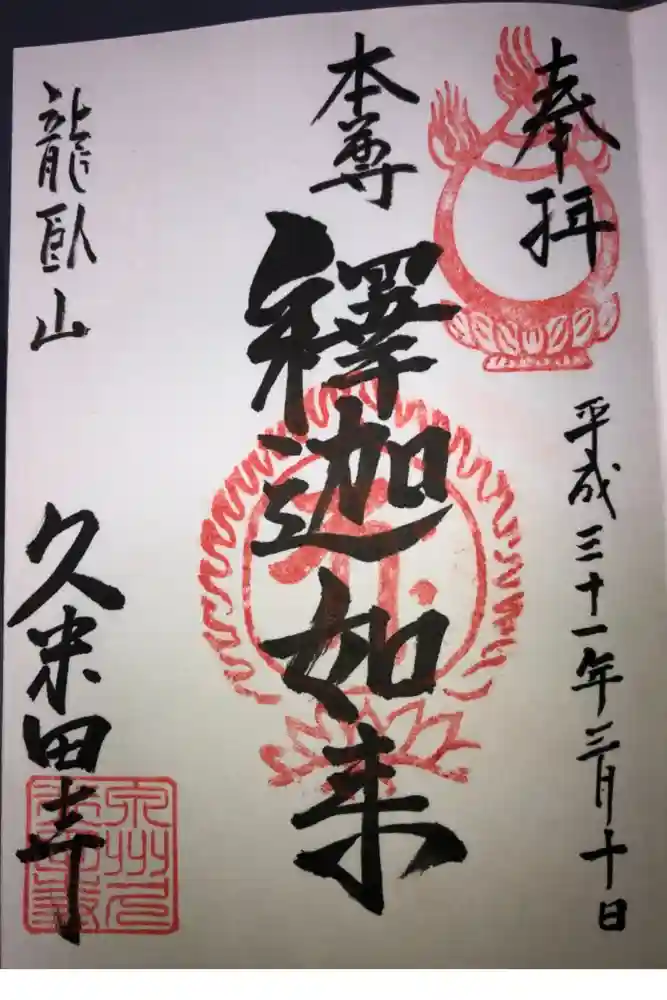 奉拝
平成三十一年三月十日
本尊
釋迦如来
龍臥山
久米田寺